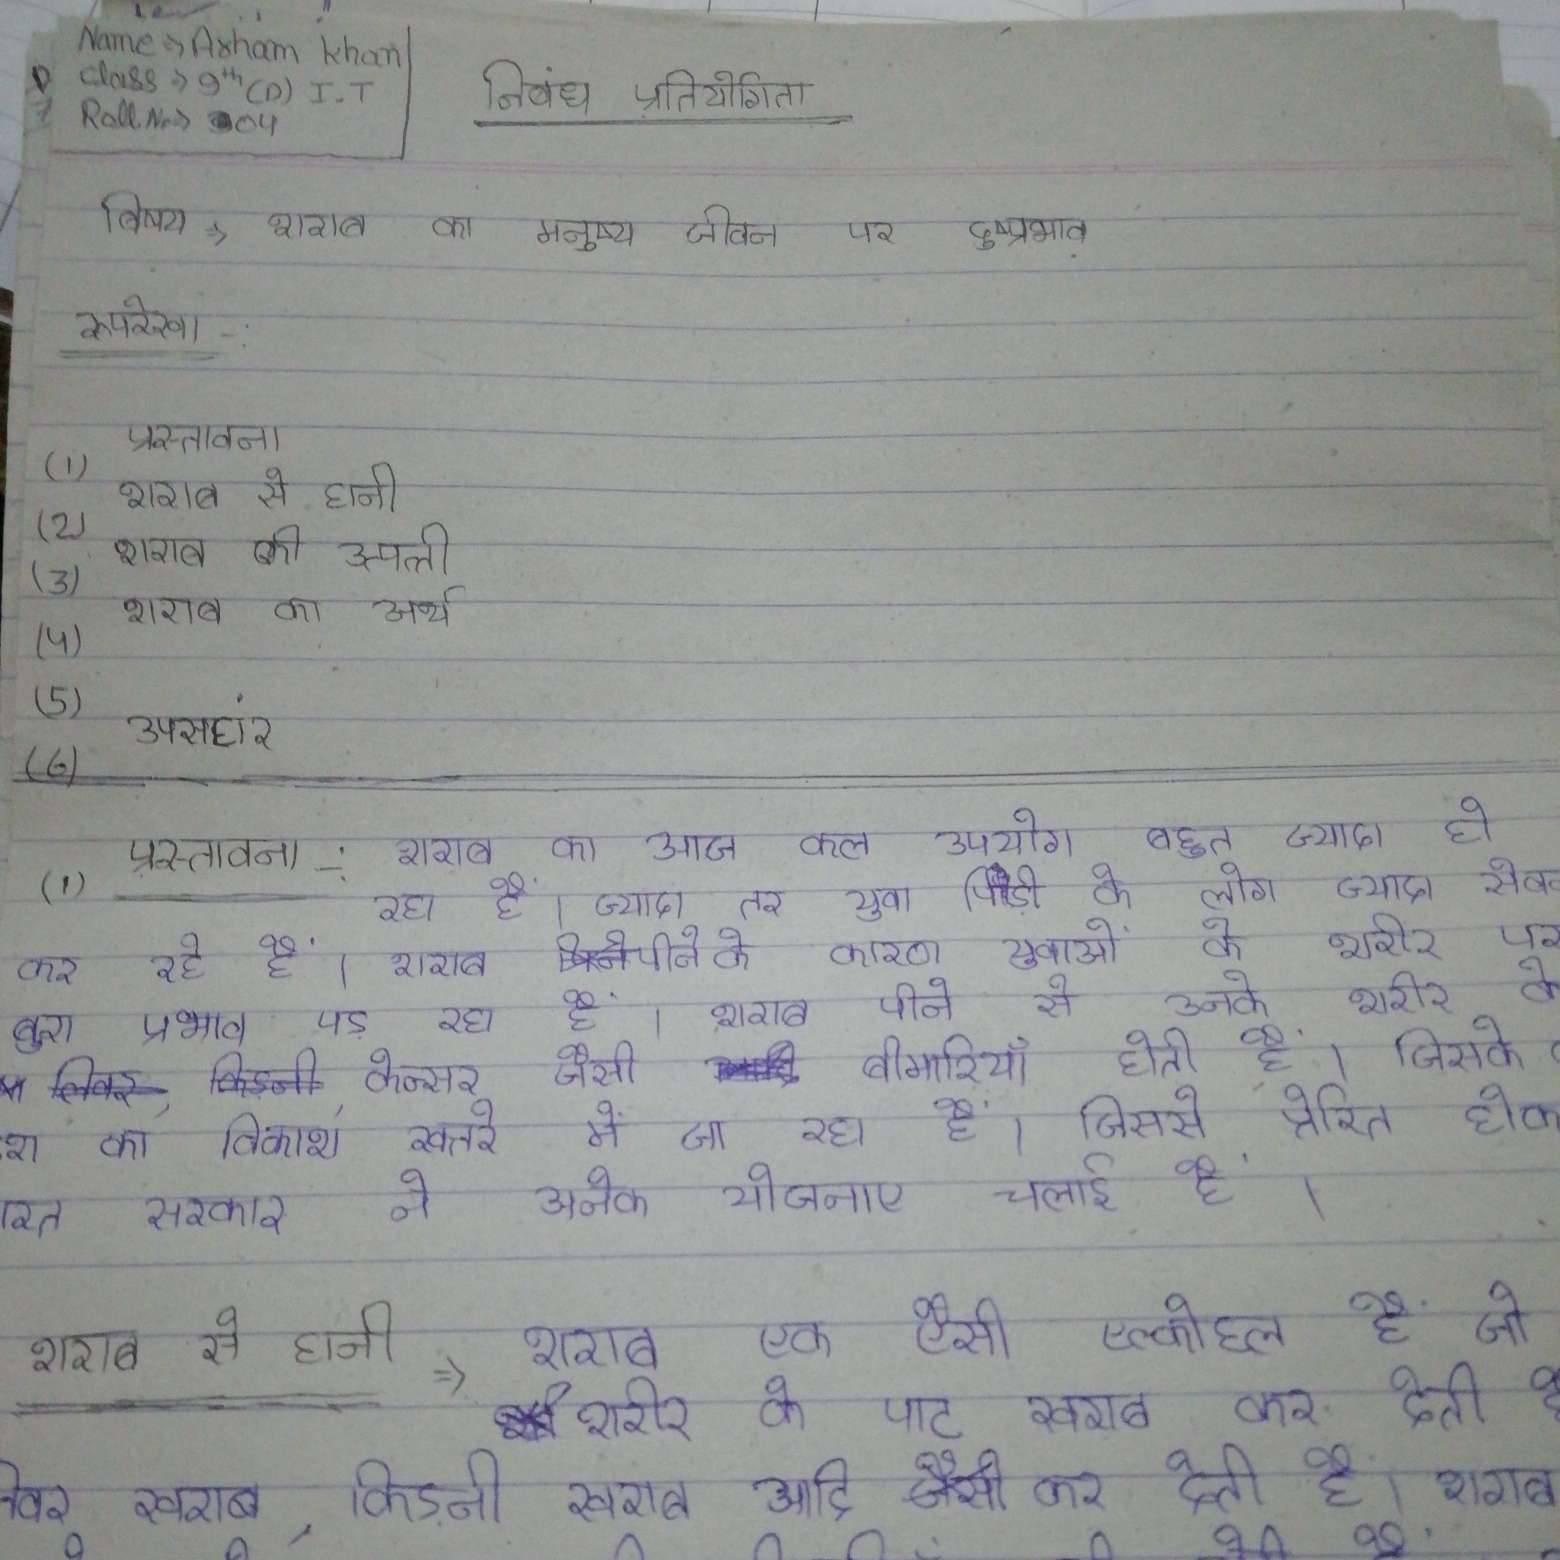 Name → Arham Khan
Class → 9th (D) I.T
Roll No → 04
निबंध प्रतियोगिता
विषय → शराब का मनुष्य जीवन पर दुष्प्रभाव
रूपरेखा -:
(1) प्रस्तावना
(2) शराब से हानी
(3) शराब की उत्पत्ती
(4) शराब का अर्थ
(5)
(6) उपसहांर
(1) प्रस्तावना -: शराब का आज कल उपयोग बहुत ज्यादा हो
रहा हैं। ज्यादा तर युवा पिड़ी के लोग ज्यादा सेवन
कर रहे हैं। शराब पीने के कारण युवाओं के शरीर पर
बुरा प्रभाव पड़ रहा हैं। शराब पीने से उनके शरीर के
लिवर, किडनी, केन्सर जैसी बीमारियाँ होती हैं। जिसके
श का विकाश खतरे में जा रहा हैं। जिससे प्रेरित होक
रत सरकार ने अनेक योजनाए चलाई हैं।
शराब से हानी ⇒ शराब एक ऐसी एल्कोहल हैं जो
शरीर के पाट खराब कर देती है
वर खराब, किड़नी खराब आदि जैसी कर देती हैं। शराब